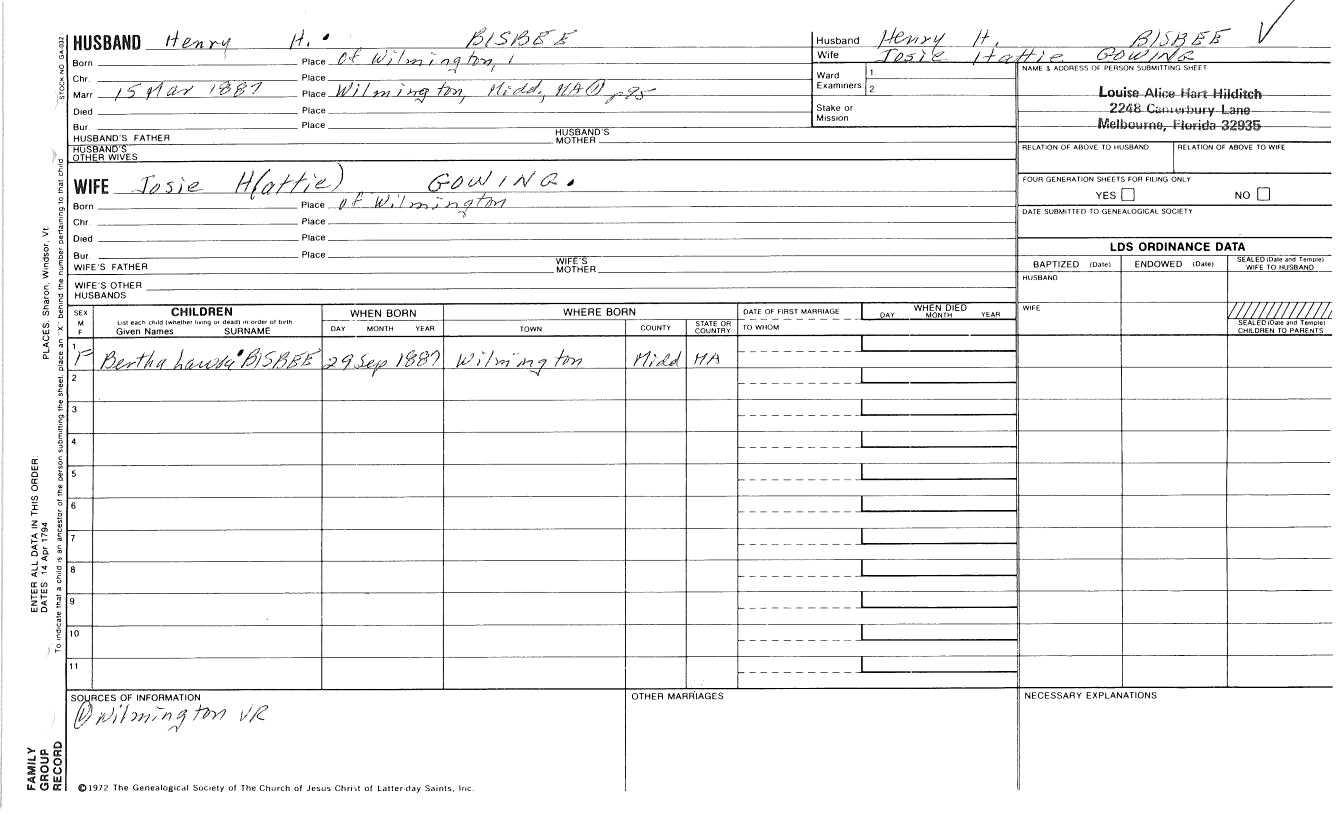 HUSBAND Henry H. BISBEE
Born Place of Wilmington,
Chr. Place
Marr 15 Mar 1887 Place Wilmington, Midd, MA ① p95
Died Place
Bur Place
HUSBAND'S FATHER HUSBAND'S MOTHER
HUSBAND'S OTHER WIVES
WIFE Josie H(attie) GOWING.
Born Place of Wilmington
Chr. Place
Died Place
Bur Place
WIFE'S FATHER WIFE'S MOTHER
WIFE'S OTHER HUSBANDS
Husband Henry H. BISBEE V
Wife Josie Hattie GOWING
Ward Examiners 1
2
Stake or Mission
NAME & ADDRESS OF PERSON SUBMITTING SHEET
Louise Alice Hart Hilditch
2248 Canterbury Lane
Melbourne, Florida 32935
RELATION OF ABOVE TO HUSBAND RELATION OF ABOVE TO WIFE
FOUR GENERATION SHEETS FOR FILING ONLY
YES NO
DATE SUBMITTED TO GENEALOGICAL SOCIETY
LDS ORDINANCE DATA
BAPTIZED (Date) ENDOWED (Date) SEALED (Date and Temple) WIFE TO HUSBAND
HUSBAND
WIFE
SEALED (Date and Temple) CHILDREN TO PARENTS
SEX M F CHILDREN WHEN BORN WHERE BORN DATE OF FIRST MARRIAGE WHEN DIED
List each child (whether living or dead) in order of birth.
Given Names SURNAME DAY MONTH YEAR TOWN COUNTY STATE OR COUNTRY TO WHOM DAY MONTH YEAR
1 F Bertha BISBEE 29 Sep 1887 Wilmington Midd MA
2
3
4
5
6
7
8
9
10
11
SOURCES OF INFORMATION OTHER MARRIAGES NECESSARY EXPLANATIONS
① Wilmington VR
©1972 The Genealogical Society of The Church of Jesus Christ of Latter-day Saints, Inc.
STOCK NO GA-032
PLACES: Sharon, Windsor, Vt.
ENTER ALL DATA IN THIS ORDER:
DATES: 14 Apr 1794
To indicate that a child is an ancestor of the person submitting the sheet, place an "X" behind the number pertaining to that child
FAMILY
GROUP
RECORD